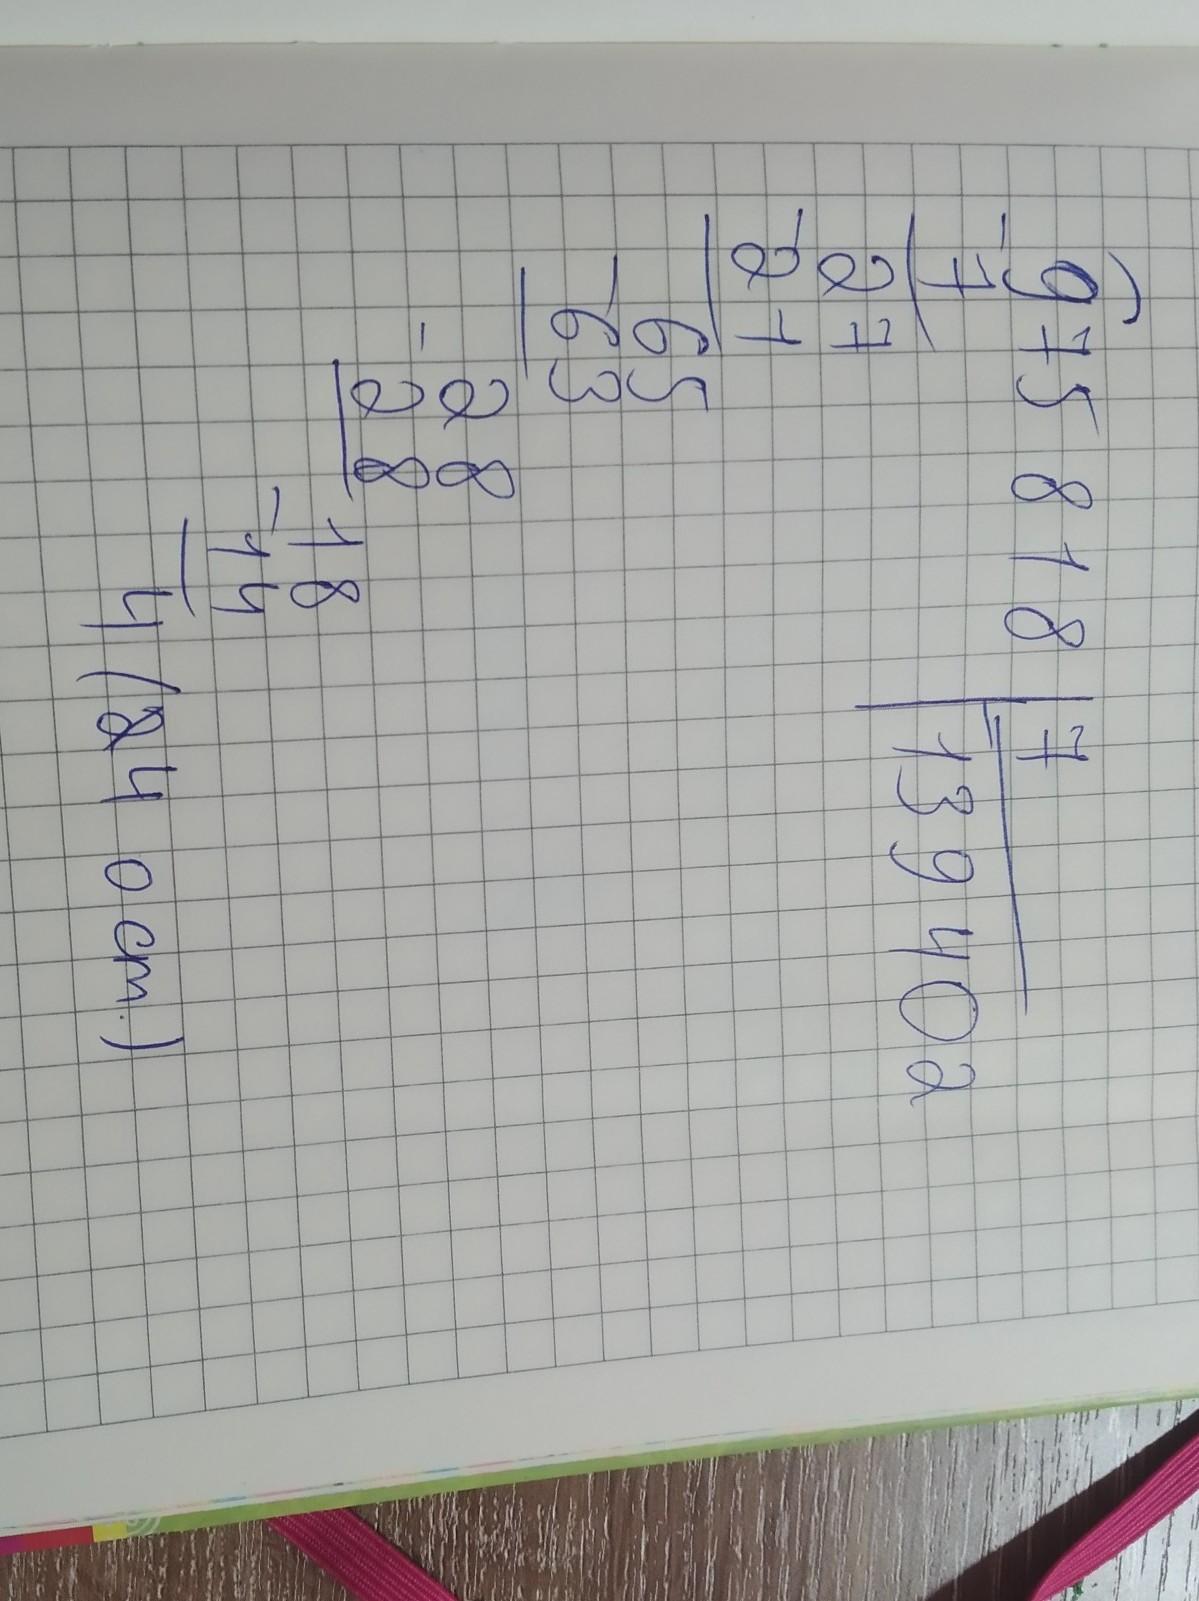 975818 | 7
-7 139402
27
-21
65
-63
28
-28
18
-14
4 (24 ост.)